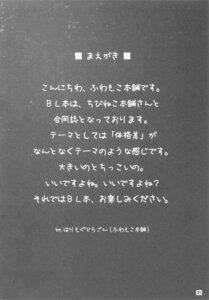 ■ まえがき ■
こんにちわ、ふわもこ本舗です。
BL本は、ちびねこ本舗さんと
合同誌となっております。
テーマとしては「体格差」が
なんとなくテーマのような感じです。
大きいのとちっこいの。
いいですよね。いいですよね?
それではBL本、お楽しみください。
by はりもぐどらごん(ふわもこ本舗)